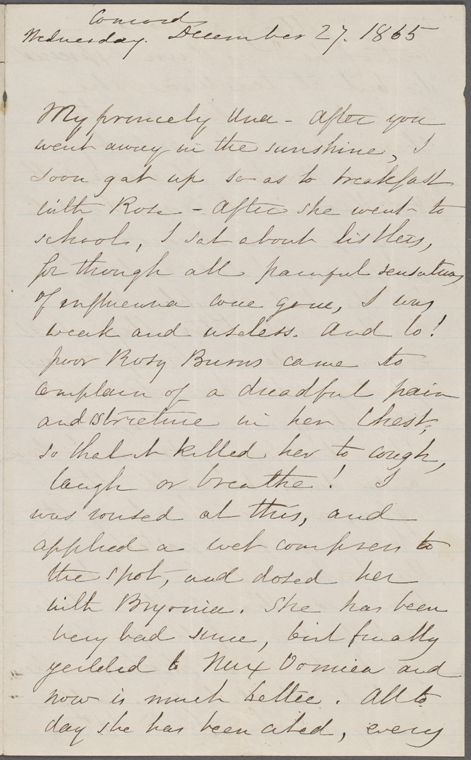 Concord
Wednesday. December 27. 1865
My princely Una - After you
went away in the sunshine, I
soon got up so as to breakfast
with Rose - After she went to
school, I sat about listless,
for though all painful sensations
of influenza were gone, I was
weak and useless. And lo!
poor Rosy Burns came to
complain of a dreadful pain
and stricture in her chest,
so that it killed her to cough,
laugh or breathe! I
was roused at this, and
applied a wet compress to
the spot, and dosed her
with Bryonia. She has been
very bad since, but finally
yeilded to Nux Vomica and
now is much better. All to
day she has been, every